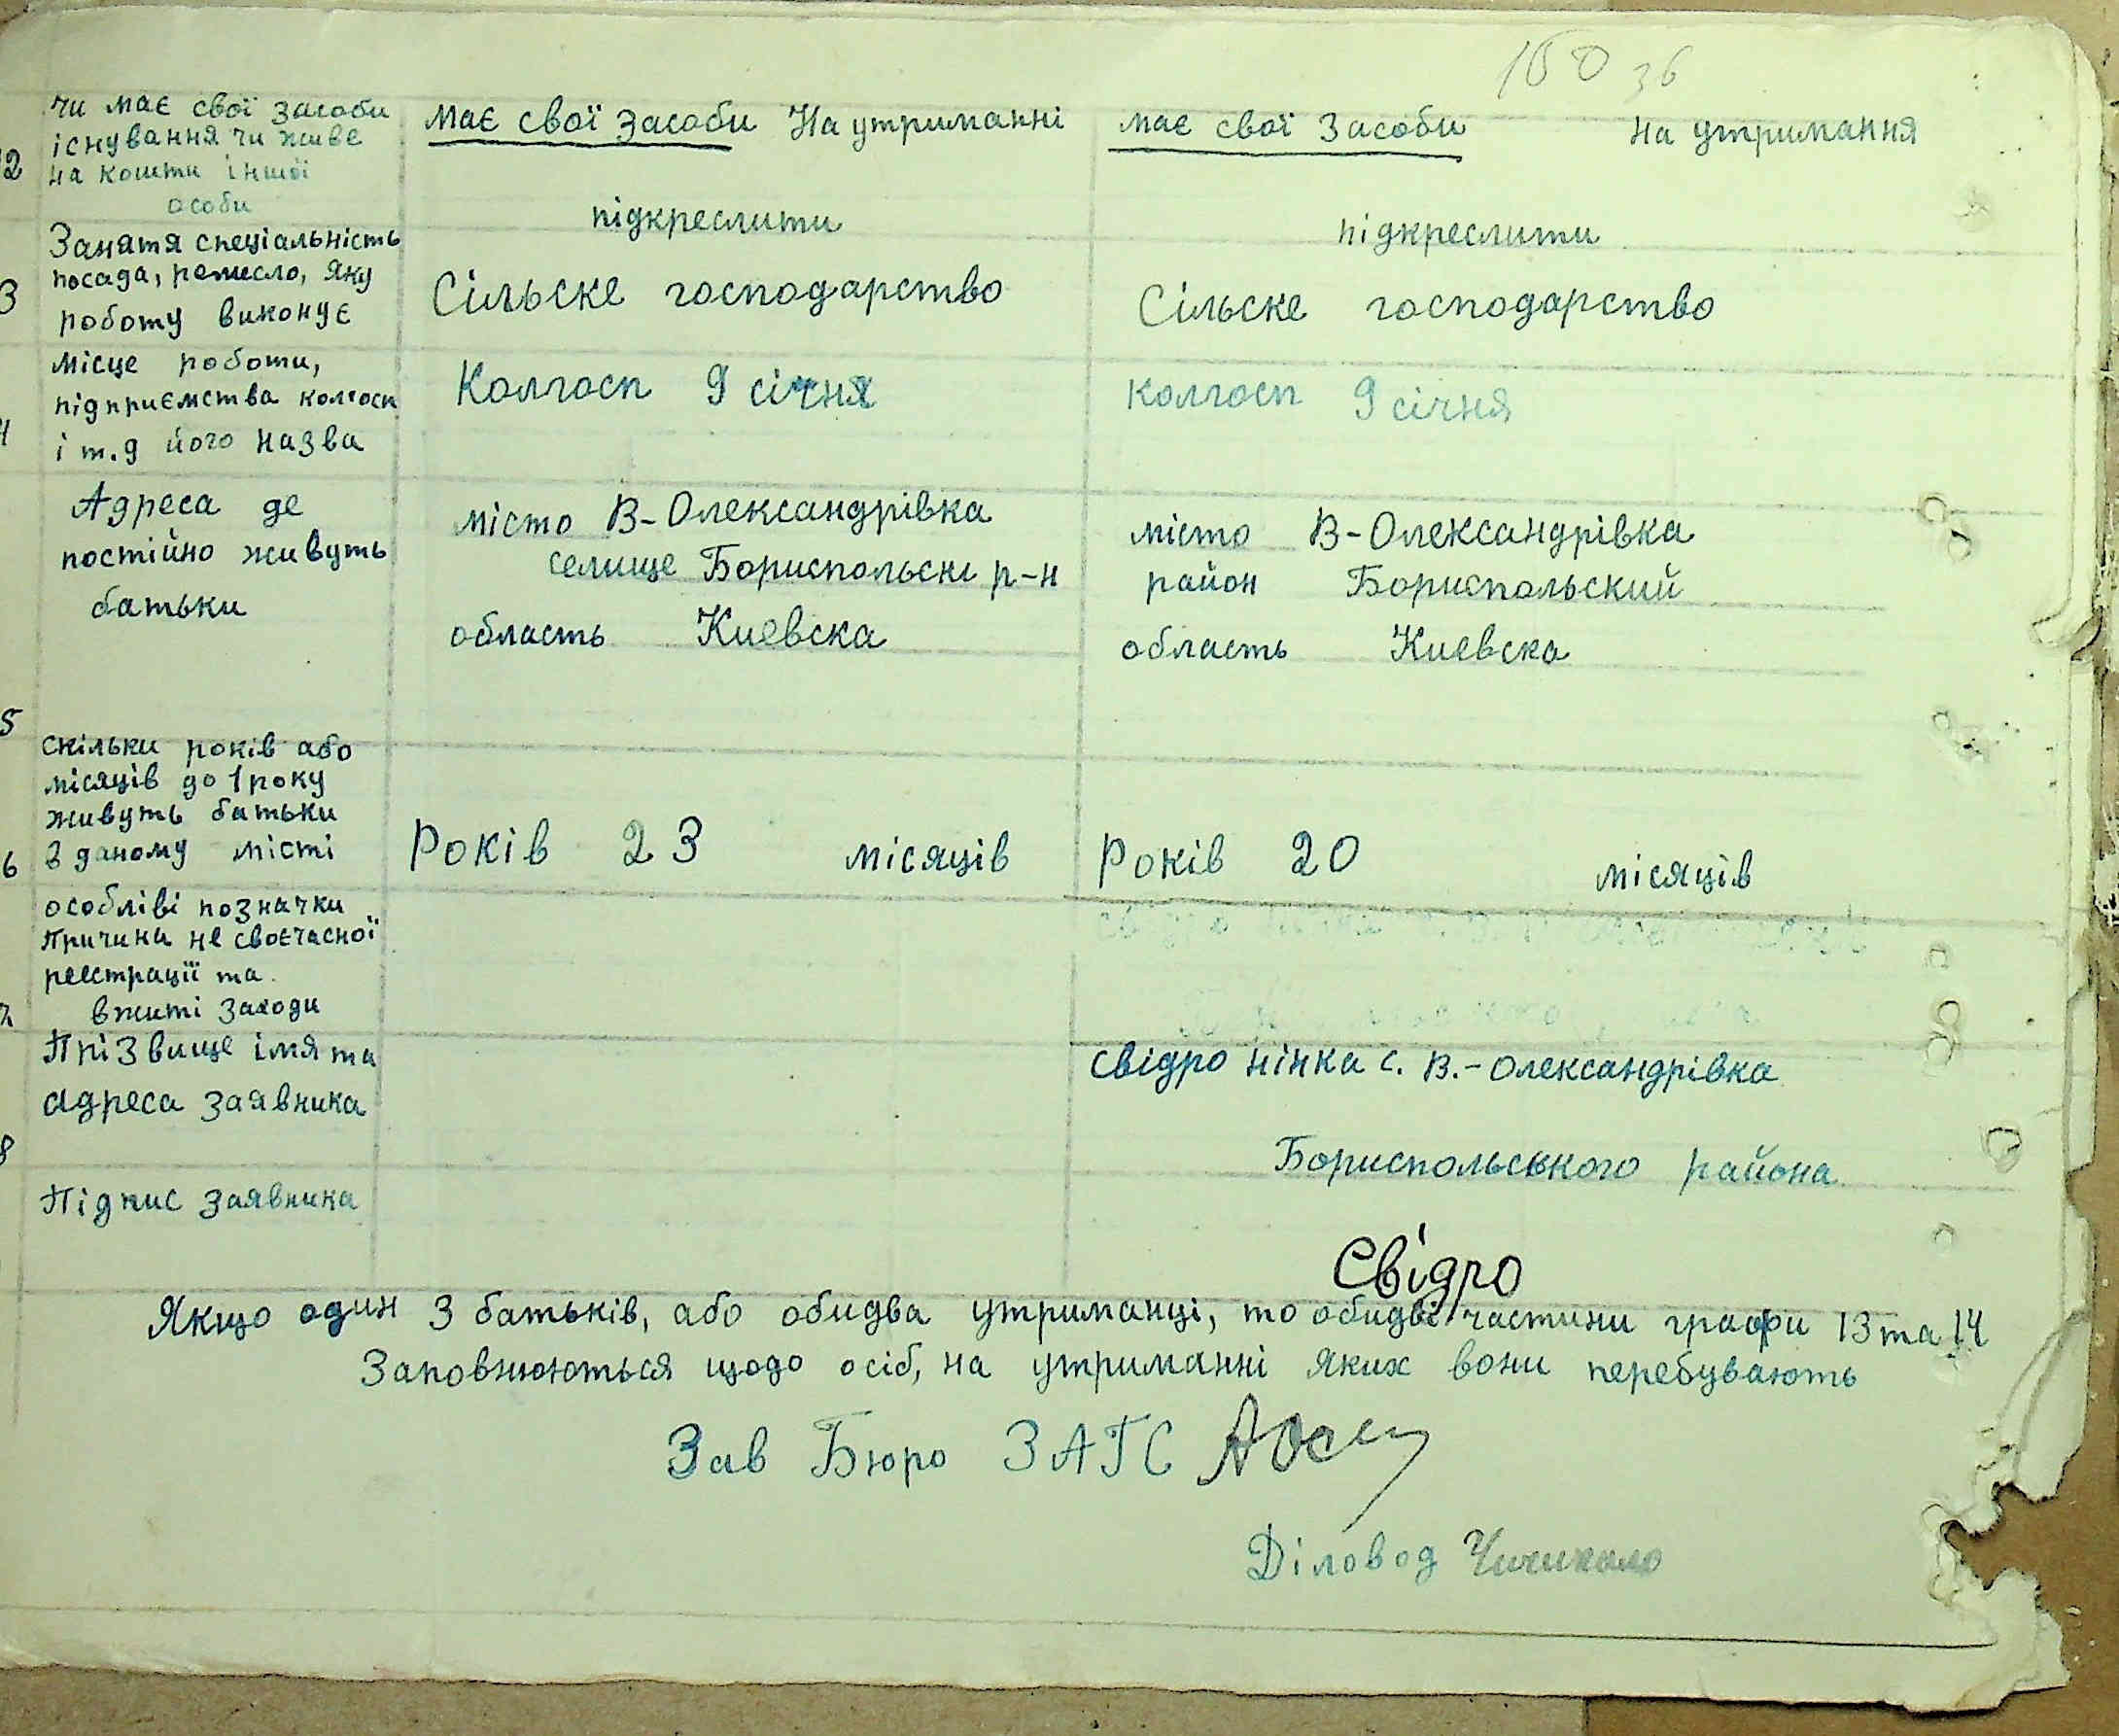 160 зв
чи має свої засоби
існування чи живе
12 на кошти іншої
особи
має свої засоби На утриманні
має свої засоби на утримання
підкреслити
підкреслити
Занятя спеціальність
посада, ремесло, яку
3 роботу виконує
Сільске господарство
Сільске господарство
місце роботи,
підприємства колгосп
4 і т.д його назва
Колгосп 9 січня
колгосп 9 січня
Адреса де
постійно живуть
батьки
місто В-Олександрівка
селище Бориспольскі р-н
область Киевска
місто В-Олександрівка
район Бориспольский
область Киевска
5
скільки років або
місяців до 1 року
живуть батьки
6 в даному місті
Років 23 місяців
Років 20 місяців
особліві позначки
Причини не своєчасної
реєстрації та
7 вжиті заходи
Прізвище імя та
адреса заявника
8
свідро нінка с. В.-Олександрівка
Бориспольського района
Підпис заявника
Свідро
Якщо один з батьків, або обидва утриманці, то обидві частини графи 13 та 14
Заповнюються щодо осіб, на утриманні яких вони перебувають
Зав Бюро ЗАГС
Діловод